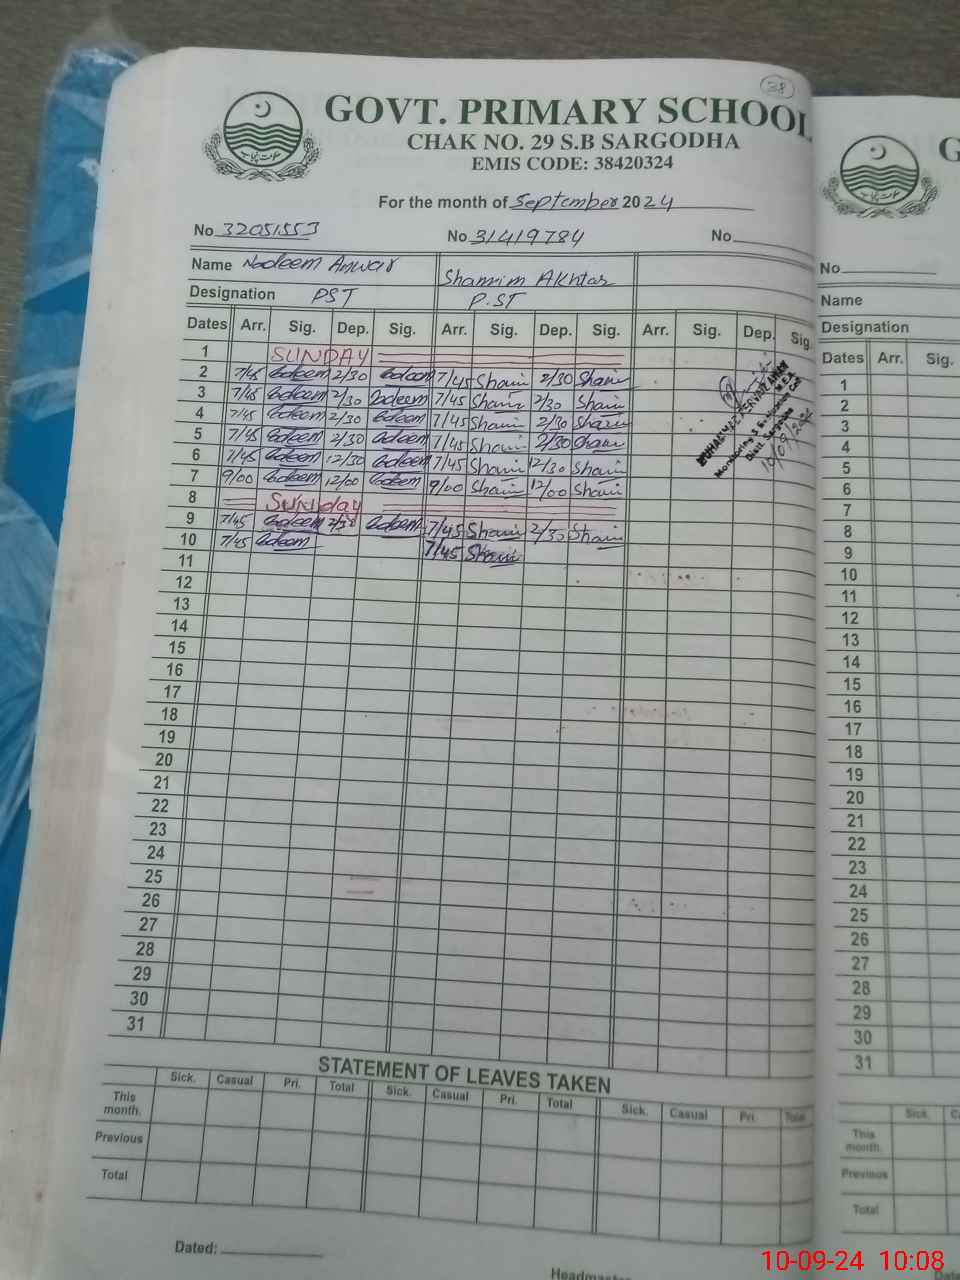 38
GOVT. PRIMARY SCHOOL
CHAK NO. 29 S.B SARGODHA
EMIS CODE: 38420324
For the month of September 2024
No 32051553 No 31419784 No
Name Nadeem Anwar Shamim Akhtar
Designation PST P.ST
Dates Arr. Sig. Dep. Sig. Arr. Sig. Dep. Sig. Arr. Sig. Dep. Sig.
1 SUNDAY
2 7/45 Nadeem 2/30 Nadeem 7/45 Sham 2/30 Sham
3 7/45 Nadeem 2/30 Nadeem 7/45 Sham 2/30 Sham
4 7/45 Nadeem 2/30 Nadeem 7/45 Sham 2/30 Sham
5 7/45 Nadeem 2/30 Nadeem 7/45 Sham 2/30 Sham
6 7/45 Nadeem 12/30 Nadeem 7/45 Sham 12/30 Sham
7 9/00 Nadeem 12/00 Nadeem 9/00 Sham 12/00 Sham
8 Sunday
9 7/45 Nadeem 2/30 Nadeem 7/45 Sham 2/30 Sham
10 7/45 Nadeem 7/45 Sham
11
12
13
14
15
16
17
18
19
20
21
22
23
24
25
26
27
28
29
30
31
Distt. Sargodha
10/09/2024
STATEMENT OF LEAVES TAKEN
Sick. Casual Pri. Total Sick. Casual Pri. Total Sick. Casual Pri. Total
This month.
Previous
Total
Dated:
Headmaster
G
No
Name
Designation
Dates Arr. Sig.
1
2
3
4
5
6
7
8
9
10
11
12
13
14
15
16
17
18
19
20
21
22
23
24
25
26
27
28
29
30
31
Sick.
This month.
Previous
Total
10-09-24 10:08